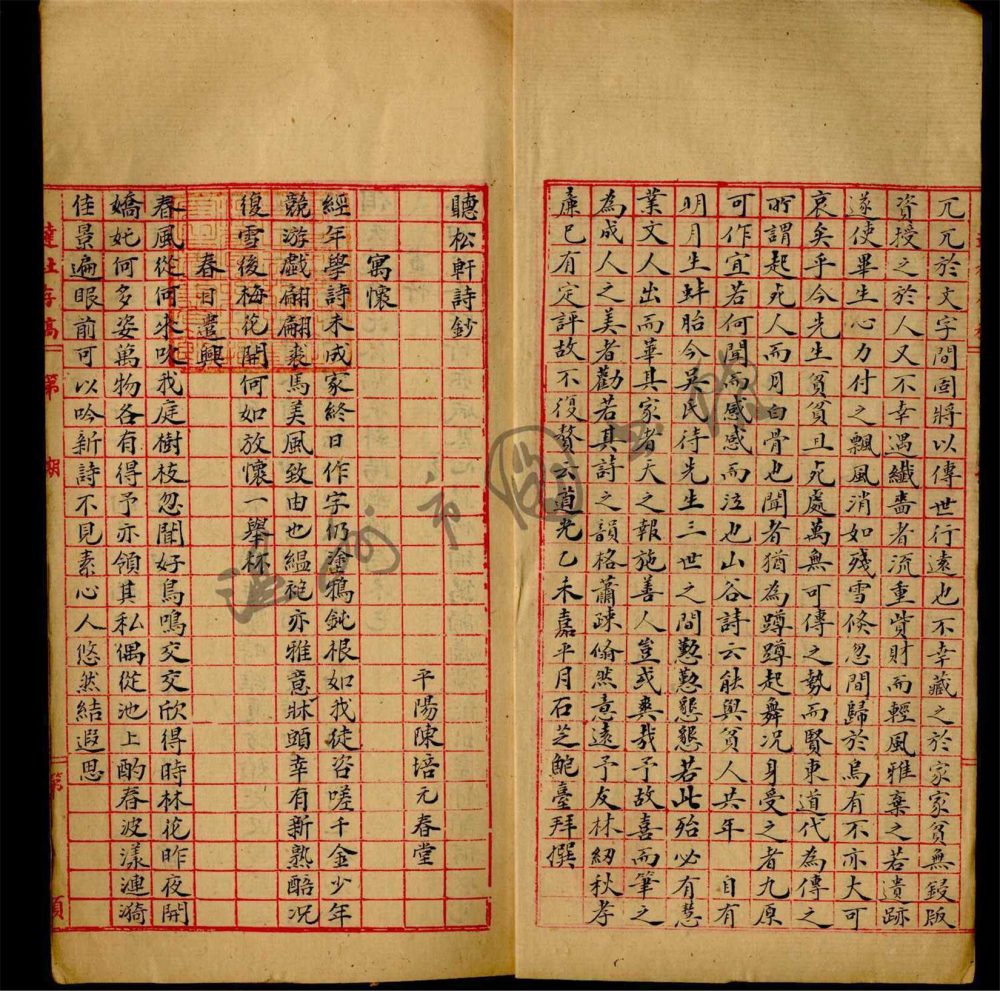 兀兀於文字間固將以傳世行遠也不幸藏之於家家貧無鋟版
資授之於人又不幸遇纖嗇者流重貲財而輕風雅棄之若遺跡
遂使畢生心力付之飄風消如殘雪倏忽間歸於烏有不亦大可
哀矣乎今先生貧貧且死處萬無可傳之勢而賢東道代為傳之
所謂起死人而肉白骨也聞者猶為蹲蹲起舞況身受之者九原
可作宜若何聞而感感而泣也山谷詩云能與貧人共年 自有
明月生蚌胎今吳氏待先生三世之間懃懃懇懇若此殆必有慧
業文人出而華其家者天之報施善人豈或爽哉予故喜而筆之
為成人之美者勸若其詩之韻格蕭疎翛然意遠予友林紉秋孝
廉已有定評故不復贅云道光乙未嘉平月石芝鮑臺拜撰
聽松軒詩鈔
平陽陳培元春堂
寓懷
經年學詩未成家終日作字仍塗鴉鈍根如我徒咨嗟千金少年
競游戲翩翩裘馬美風致由也緼袍亦雅意牀頭幸有新熟醅況
復雪後梅花開何如放懷一舉杯
春日遣興
春風從何來吹我庭樹枝忽聞好鳥鳴交交欣得時林花昨夜開
嬌奼何多姿萬物各有得予亦領其私偶從池上酌春波漾漣漪
佳景遍眼前可以吟新詩不見素心人悠然結遐思